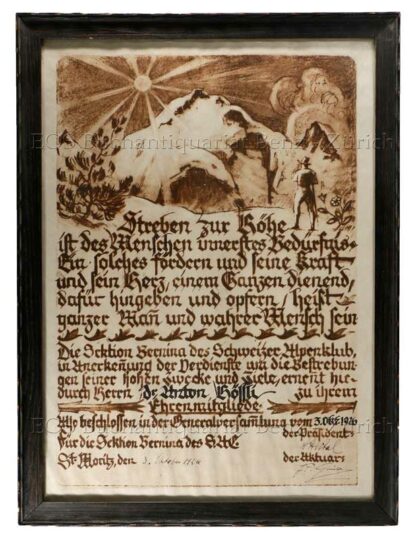 EOS Buchantiquariat Benz, Zürich
Streben zur Höhe
ist des Menschen innerstes Bedürfnis.
Ein solches fördern und seine Kraft
und sein Herz, einem Ganzen dienend,
dafür hingeben und opfern, heißt
ganzer Man̄ und wahrer Mensch sein
Die Sektion Bernina des Schweizer Alpenklub,
in Anerkenūng der Verdienste um die Bestrebun-
gen seiner hohen Zwecke und Ziele, ernent hie-
durch Herrn Dr Anton Gössli zu ihrem
Ehrenmitgliede.
Also beschlossen in der Generalversamlung vom 3. Okt. 1926
Für die Sektion Bernina des S.A.C. der Präsident:
St. Moritz, den 3. Oktober 1926
der Aktuar: